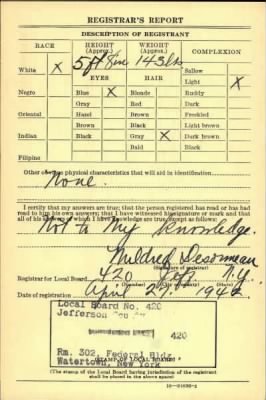 REGISTRAR'S REPORT
DESCRIPTION OF REGISTRANT
RACE HEIGHT (Approx.) WEIGHT (Approx.) COMPLEXION
5 ft 8 in 143 lbs
White X EYES HAIR Sallow
Light X
Negro Blue X Blonde Ruddy
Gray Red Dark
Oriental Hazel Brown Freckled
Brown Black Light brown
Indian Black Gray X Dark brown
Bald Black
Filipino
Other obvious physical characteristics that will aid in identification
None.
I certify that my answers are true; that the person registered has read or has had
read to him his own answers; that I have witnessed his signature or mark and that
all of his answers of which I have knowledge are true, except as follows:
Not to My Knowledge.
Mildred
(Signature of registrar)
Registrar for Local Board 420 Jeff N.Y.
(Number) (City or county) (State)
Date of registration April 27, 1942
Local Board No. 420
Jefferson
420
Rm. 302, Federal Bldg.
Watertown, New York
(STAMP OF LOCAL BOARD)
(The stamp of the Local Board having jurisdiction of the registrant
shall be placed in the above space)